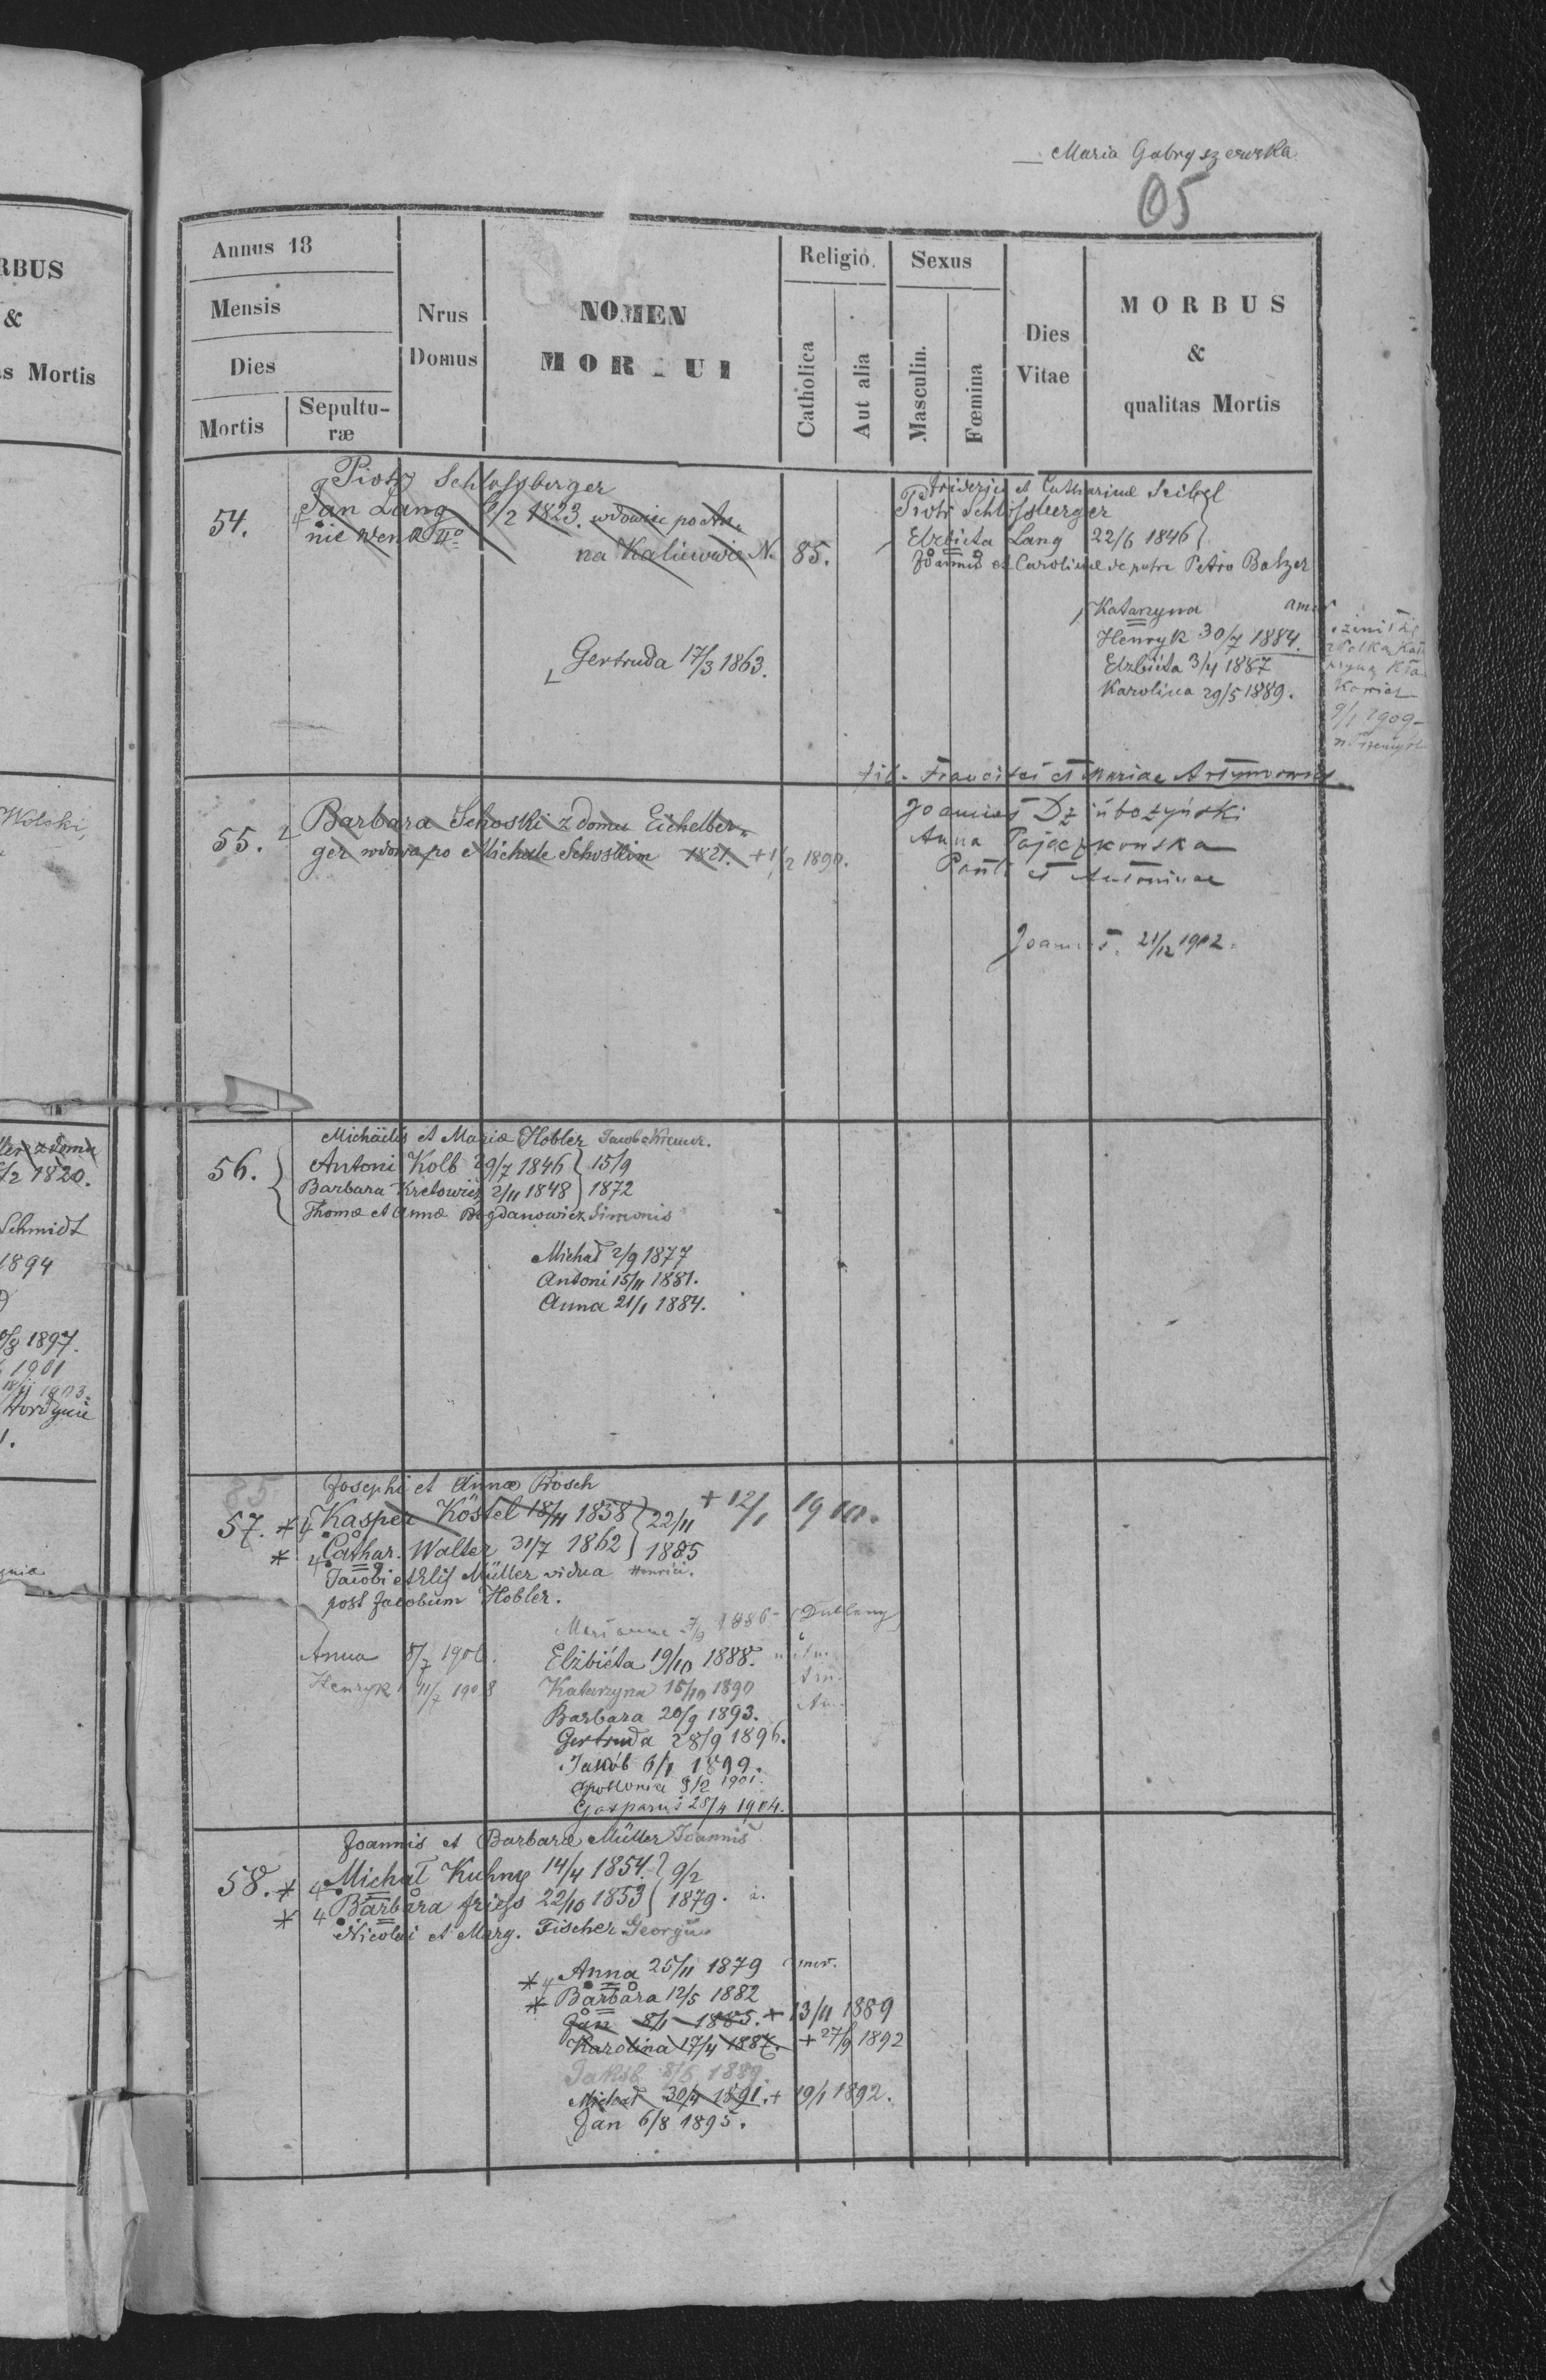 Maria Gabryszewska
05
RBUS
&
as Mortis
Wolski,
z domu
1/2 1820.
Schmidt
1894
1897.
1901
1903.
Annus 18
Mensis
Dies
Mortis
Sepultu-
ræ
Nrus
Domus
NOMEN
MORTUI
Religio.
Catholica
Aut alia
Sexus
Masculin.
Fœmina
Dies
Vitae
MORBUS
&
qualitas Mortis
54.
Piotr Schlossberger
Jan Lang /2 1823. wdowiec po An-
nie Wenk IIo
na Kaliewwic N. 85.
Gertruda 17/3 1863.
Friderici et Catharinæ Seibel
Piotr Schlossberger
Elzbieta Lang 22/6 1846
Joannis et Carolinæ de patre Petro Balzer
Katarzyna amer
Henryk 30/7 1884.
Elzbieta 3/4 1887
Karolina 29/5 1889.
9/1 1909
fil. Francisci et Mariae Artymowicz
55.
Barbara Schostki z domu Eichelber-
ger wdowa po Michale Schostkim 1821. + 1/2 1890.
Joannes Dziubożyński
Anna Pajączkowska
Pauli et Antoninae
Joannes. 21/12 1902.
56.
Michäelis et Mariæ Hobler Jacob Kremer.
Antoni Kolb 29/7 1846 } 15/9
Barbara Kretowicz 2/11 1848 } 1872
Thomæ et Annæ Bogdanowicz Simonis
Michał 2/9 1877
Antoni 15/11 1881.
Anna 21/1 1884.
85
Josephi et Annæ Prosch
57. * 4 Kasper Köstel 18/11 1858 } 22/11 + 12/1 1910.
* 4 Cathar. Walter 31/7 1862 } 1885
Jacobi et Elis Müller vidua Henrici.
post Jacobum Hobler.
Marianna 7/9 1886 - (Dublany)
Anna 8/7 1906.
Elżbiéta 19/10 1888.
Henryk 11/7 1908
Katarzyna 15/10 1890
Barbara 20/9 1893.
Gertruda 28/9 1896.
Jakób 6/1 1899.
Apollonia 9/2 1901.
Gasparus 28/4 1904.
Joannis et Barbaræ Müller Joannis
58. * 4 Michał Kuhny 14/4 1854. } 9/2
* 4 Barbara Friess 22/10 1853 } 1879.
Nicolai et Marg. Fischer Georgii
* 4 Anna 25/11 1879 amer.
* Barbara 12/5 1882
Jan 8/1 1885. + 13/11 1889
Karolina 17/4 1887. + 27/9 1892
Jakób 8/6 1889.
Michał 30/4 1891. + 19/1 1892.
Jan 6/8 1895.